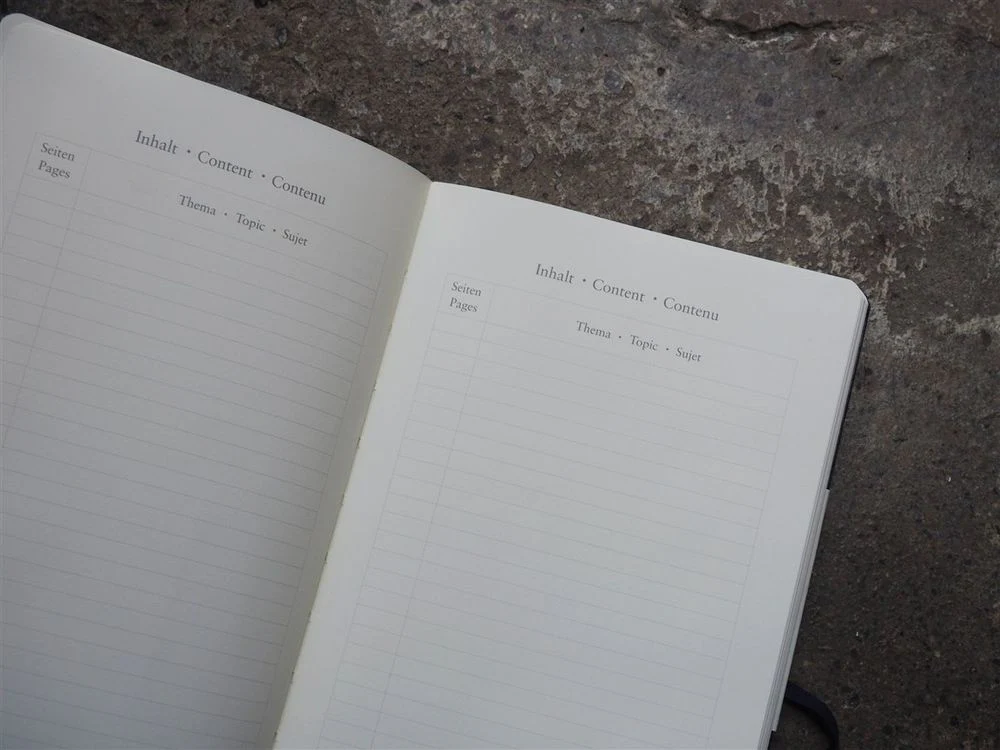 Inhalt · Content · Contenu
Seiten
Pages
Thema · Topic · Sujet
Inhalt · Content · Contenu
Seiten
Pages
Thema · Topic · Sujet